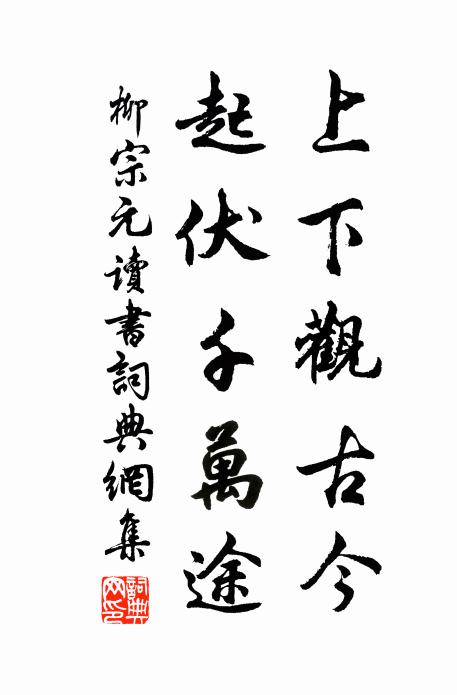 上下觀古今
起伏千萬途
柳宗元讀書詞典網集
詞典網印